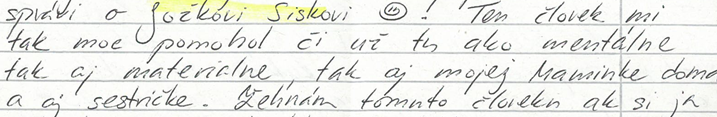 správi o Jožkovi Siskovi ☺! Ten človek mi
tak moc pomohol či už tu ako mentálne
tak aj materiálne, tak aj mojej Maminke doma
a aj sestričke. Žehnám tomuto človeku ak si ja